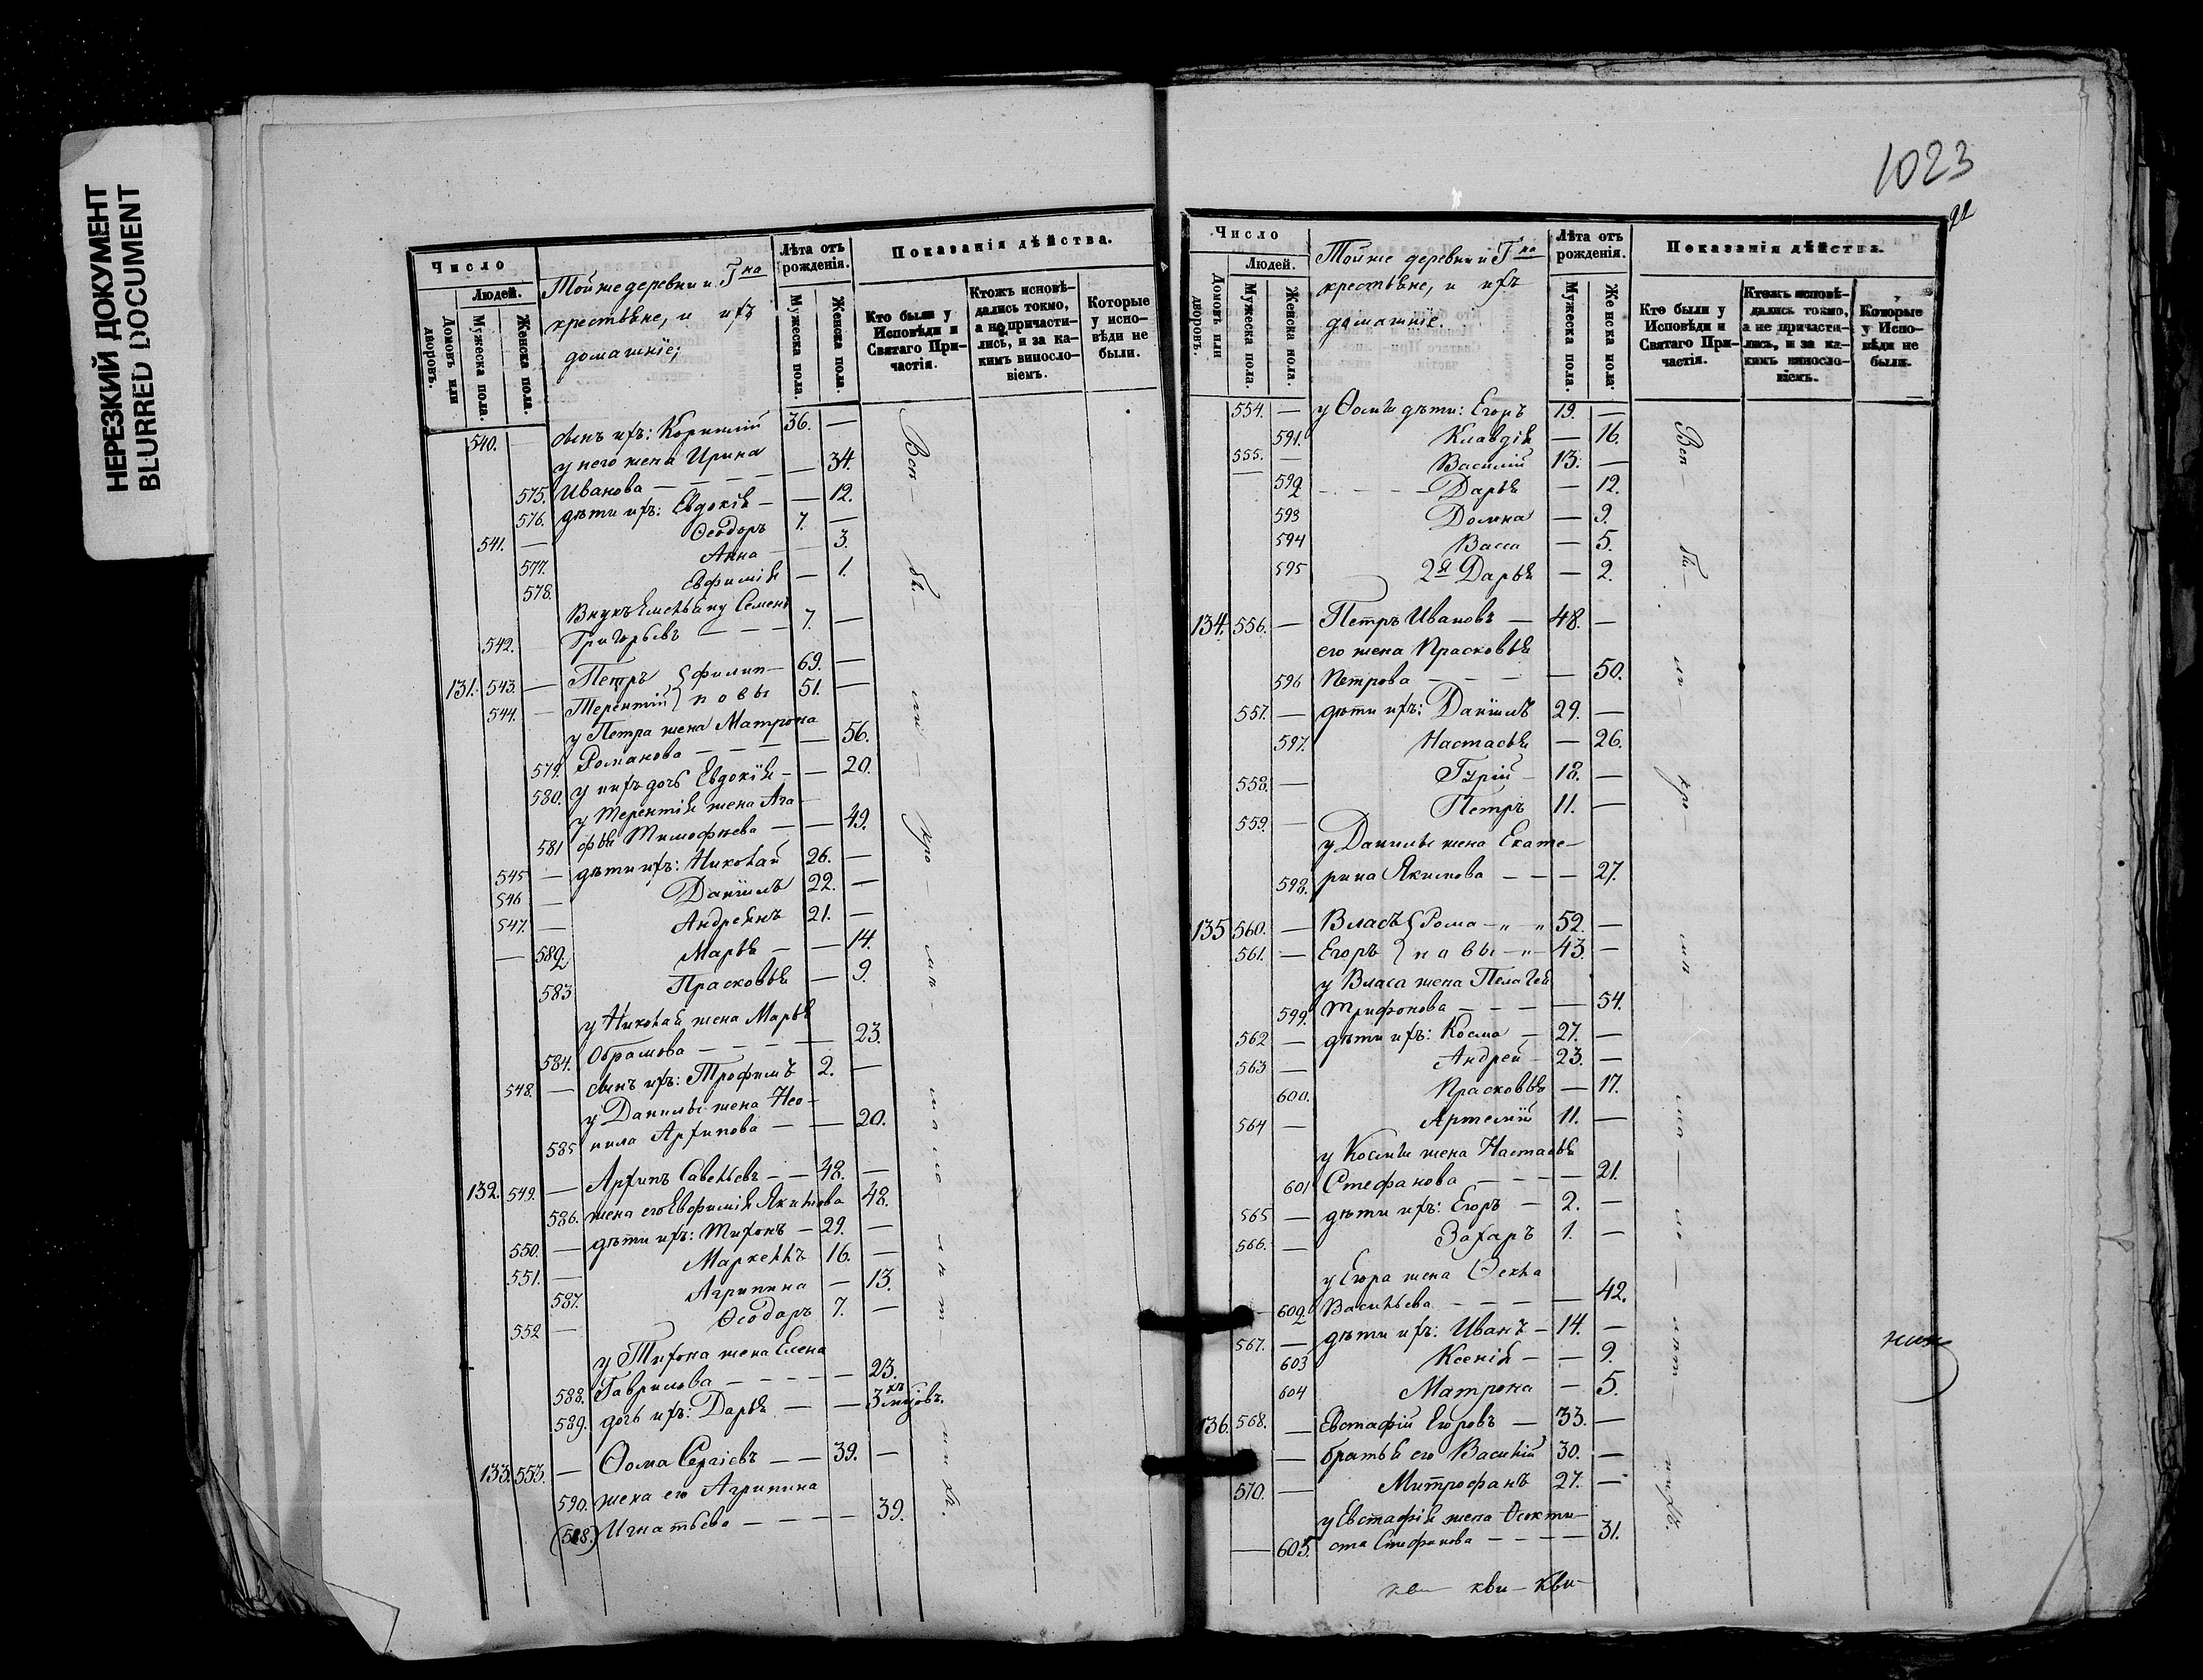 НЕРЕЗКИЙ ДОКУМЕНТ
BLURRED DOCUMENT
Число
Людей.
Домовъ или дворовъ.
Мужеска пола.
Женска пола.
Тойже деревни и Гна
крестьяне, и ихъ
домашніе;
Лѣта отъ рожденія.
Мужеска пола.
Женска пола
Показанія дѣйства.
Кто были у Исповѣди и Святаго Причастія.
Ктожъ исповѣдались токмо, а не причастились, и за какимъ винословіемъ.
Которые у исповѣди не были.
540. — сынъ ихъ: Корнилій 36. —
у него жена Ирина
575. Иванова — — — — 34.
576. дѣти ихъ: Евдокія — — 12.
541. — Ѳеодоръ 7. —
577. Анна — — 3.
578. Евфимія — 1.
Внукъ Емельяну Семенъ
542. Григорьевъ — — — 7. —
131. 543. — Петръ { Филип— 69. —
544. — Терентій } повы 51. —
у Петра жена Матрона
579. Романова — — — — 56.
580. у нихъ дочь Евдокія — — 20.
у Терентія жена Ага—
581 фья Тимофѣева — — 49.
545 — дѣти ихъ: Николай 26. —
546 — Даніилъ 22. —
547. — Андреянъ 21. —
— 582 Марья — — 14.
583 Прасковья — 9.
у Николая жена Марья
584. Обрамова — — — — 23.
548. — сынъ ихъ: Трофимъ 2. —
у Данилы жена Нео—
585 нила Архипова — — 20.
132. 549. — Архипъ Савельевъ — — 48. —
586. жена его Евфимія Якимова 48.
550. — дѣти ихъ: Тихонъ — 29. —
551. — Маркеллъ 16. —
587. Агрипина — 13.
552 — Ѳеодоръ 7. —
у Тихона жена Елена
588. Гаврилова — — — — — 23.
589. дочь ихъ: Дарья — — 3хъ мцовъ.
133. 553. — Ѳома Сергіевъ — — 39. —
590. жена его Агрипина
(588.) Игнатьева — — — — 39.
Вси— бы— ли — кро — мѣ — мало — лѣт — нихъ.
1023
Число
Людей.
Домовъ или дворовъ.
Мужеска пола.
Женска пола.
Тойже деревни и Гна
крестьяне, и ихъ
домашніе.
Лѣта отъ рожденія.
Мужеска пола.
Женска пола.
Показанія дѣйства.
Кто были у Исповѣди и Святаго Причастія.
Ктожъ исповѣдались токмо, а не причастились, и за какимъ винословіемъ.
Которые у Исповѣди не были.
554. — у Ѳомы дѣти: Егоръ 19. —
591. Клавдія — 16.
555. — Василій 13. —
592 — — — — Дарья — 12.
593 Домна — 9.
594 Васса — 5.
595 2я Дарья — 2.
134. 556. — Петръ Ивановъ — 48. —
его жена Прасковья
596 Петрова — — — — — 50.
557. — дѣти ихъ: Даніилъ 29. —
597. Настасья — 26.
558. — Гурій — 18. —
559. — Петръ 11. —
у Данилы жена Екате—
598. рина Якимова — — — 27.
135 560. — Власъ { Рома —"—" 52. —
561. — Егоръ } новы —"— 43. —
у Власа жена Пелагея
599. Трифонова — — — — 54.
562 — дѣти ихъ: Косма — 27. —
563 — Андрей — 23. —
600. Прасковья — 17.
564 — Артемій 11. —
у Космы жена Настасья
601 Стефанова — — — — 21.
565 — дѣти ихъ: Егоръ — 2. —
566. — Захаръ 1. —
у Егора жена Ѳекла
— 602 Васильева — — — — 42.
567. — дѣти ихъ: Иванъ — 14. —
603 Ксенія — — 9.
604 Матрона — 5.
136. 568. — Евстафій Егоровъ — 33. —
— братья его Василій 30. —
570. — Митрофанъ 27. —
у Евстафія жена Ѳеокти—
— 605. ста Стефанова — — — — 31.
Вси — бы — ли — кро — мѣ — мо — ло — лѣт — нихъ.